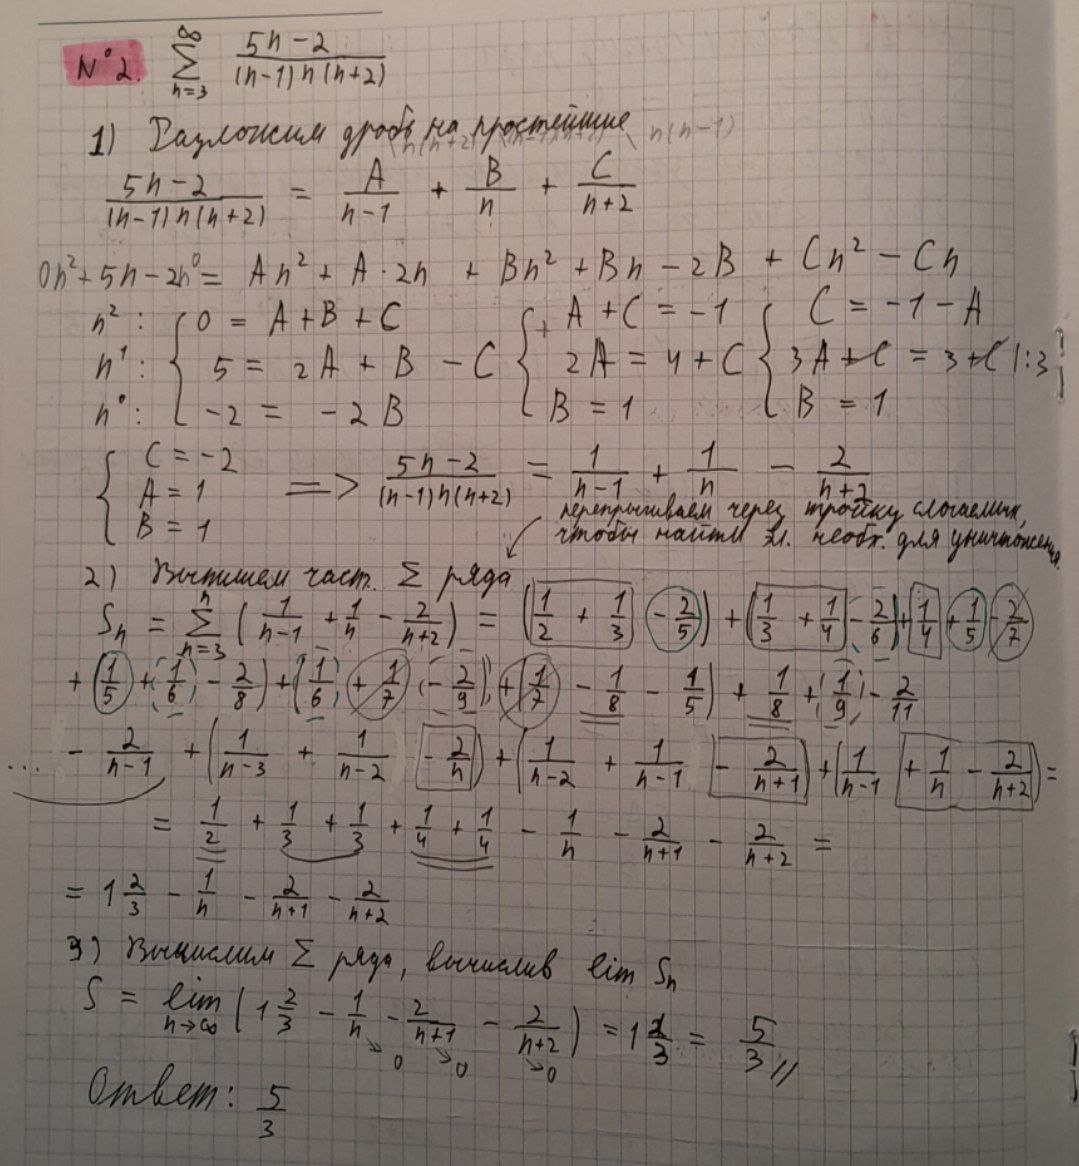 N°2. ∑_{n=3}^{∞} (5n-2)/((n-1)n(n+2))
1) Разложим дробь на простейшие
(5n-2)/((n-1)n(n+2)) = A/(n-1) + B/n + C/(n+2)
0n²+5n-2n⁰ = An² + A·2n + Bn² + Bn - 2B + Cn² - Cn
n²: { 0 = A+B+C { + A+C = -1 { C = -1-A
n¹: { 5 = 2A+B-C { 2A = 4+C { 3A+C = 3+C |:3
n⁰: { -2 = -2B { B = 1 { B = 1
{ C = -2
{ A = 1 => (5n-2)/((n-1)n(n+2)) = 1/(n-1) + 1/n - 2/(n+2)
{ B = 1
перепрыгиваем через тройку слагаемых,
чтобы найти эл. необх. для уничтожения
2) Выпишем част. Σ ряда
Sn = ∑_{n=3}^{n} (1/(n-1) + 1/n - 2/(n+2)) = (1/2 + 1/3 - 2/5) + (1/3 + 1/4 - 2/6) + 1/4 + 1/5 - 2/7
+ (1/5 + 1/6 - 2/8) + (1/6 + 1/7 - 2/9) + (1/7 - 1/8 - 1/5) + 1/8 + 1/9 - 2/11
... - 2/(n-1) + (1/(n-3) + 1/(n-2) - 2/n) + (1/(n-2) + 1/(n-1) - 2/(n+1)) + (1/(n-1) + 1/n - 2/(n+2)) =
= 1/2 + 1/3 + 1/3 + 1/4 + 1/4 - 1/n - 2/(n+1) - 2/(n+2) =
= 1 2/3 - 1/n - 2/(n+1) - 2/(n+2)
3) Вычислим Σ ряда, вычислив lim Sn
S = lim_{n→∞} (1 2/3 - 1/n - 2/(n+1) - 2/(n+2)) = 1 2/3 = 5/3 //
→0 →0 →0
Ответ: 5/3